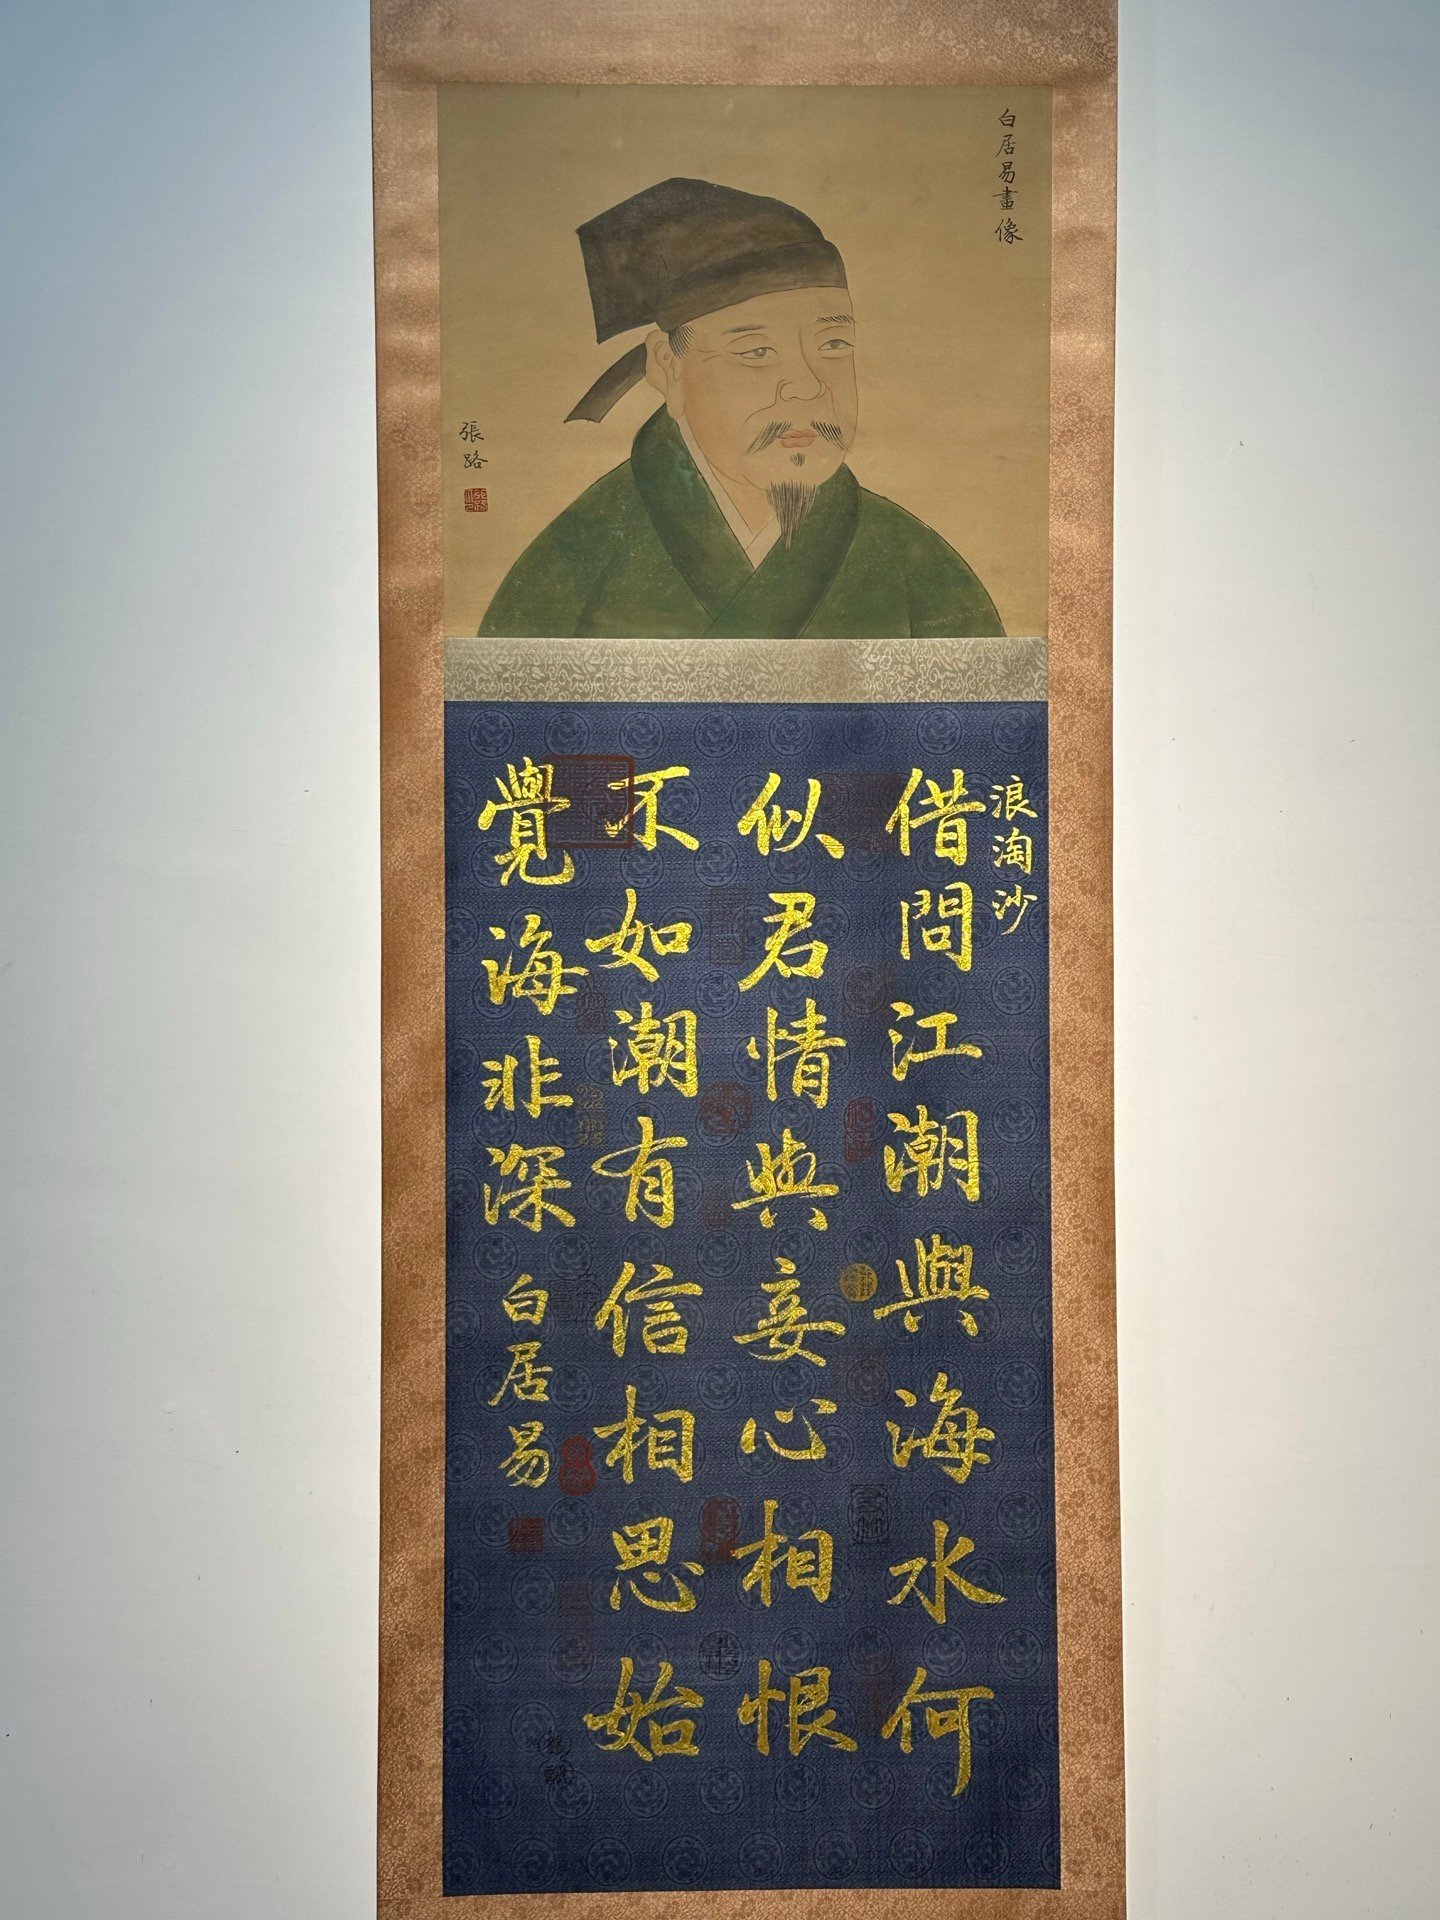 白居易畫像
張路
浪淘沙
借問江潮與海水何
似君情與妾心相恨
不如潮有信相思始
覺海非深
白居易